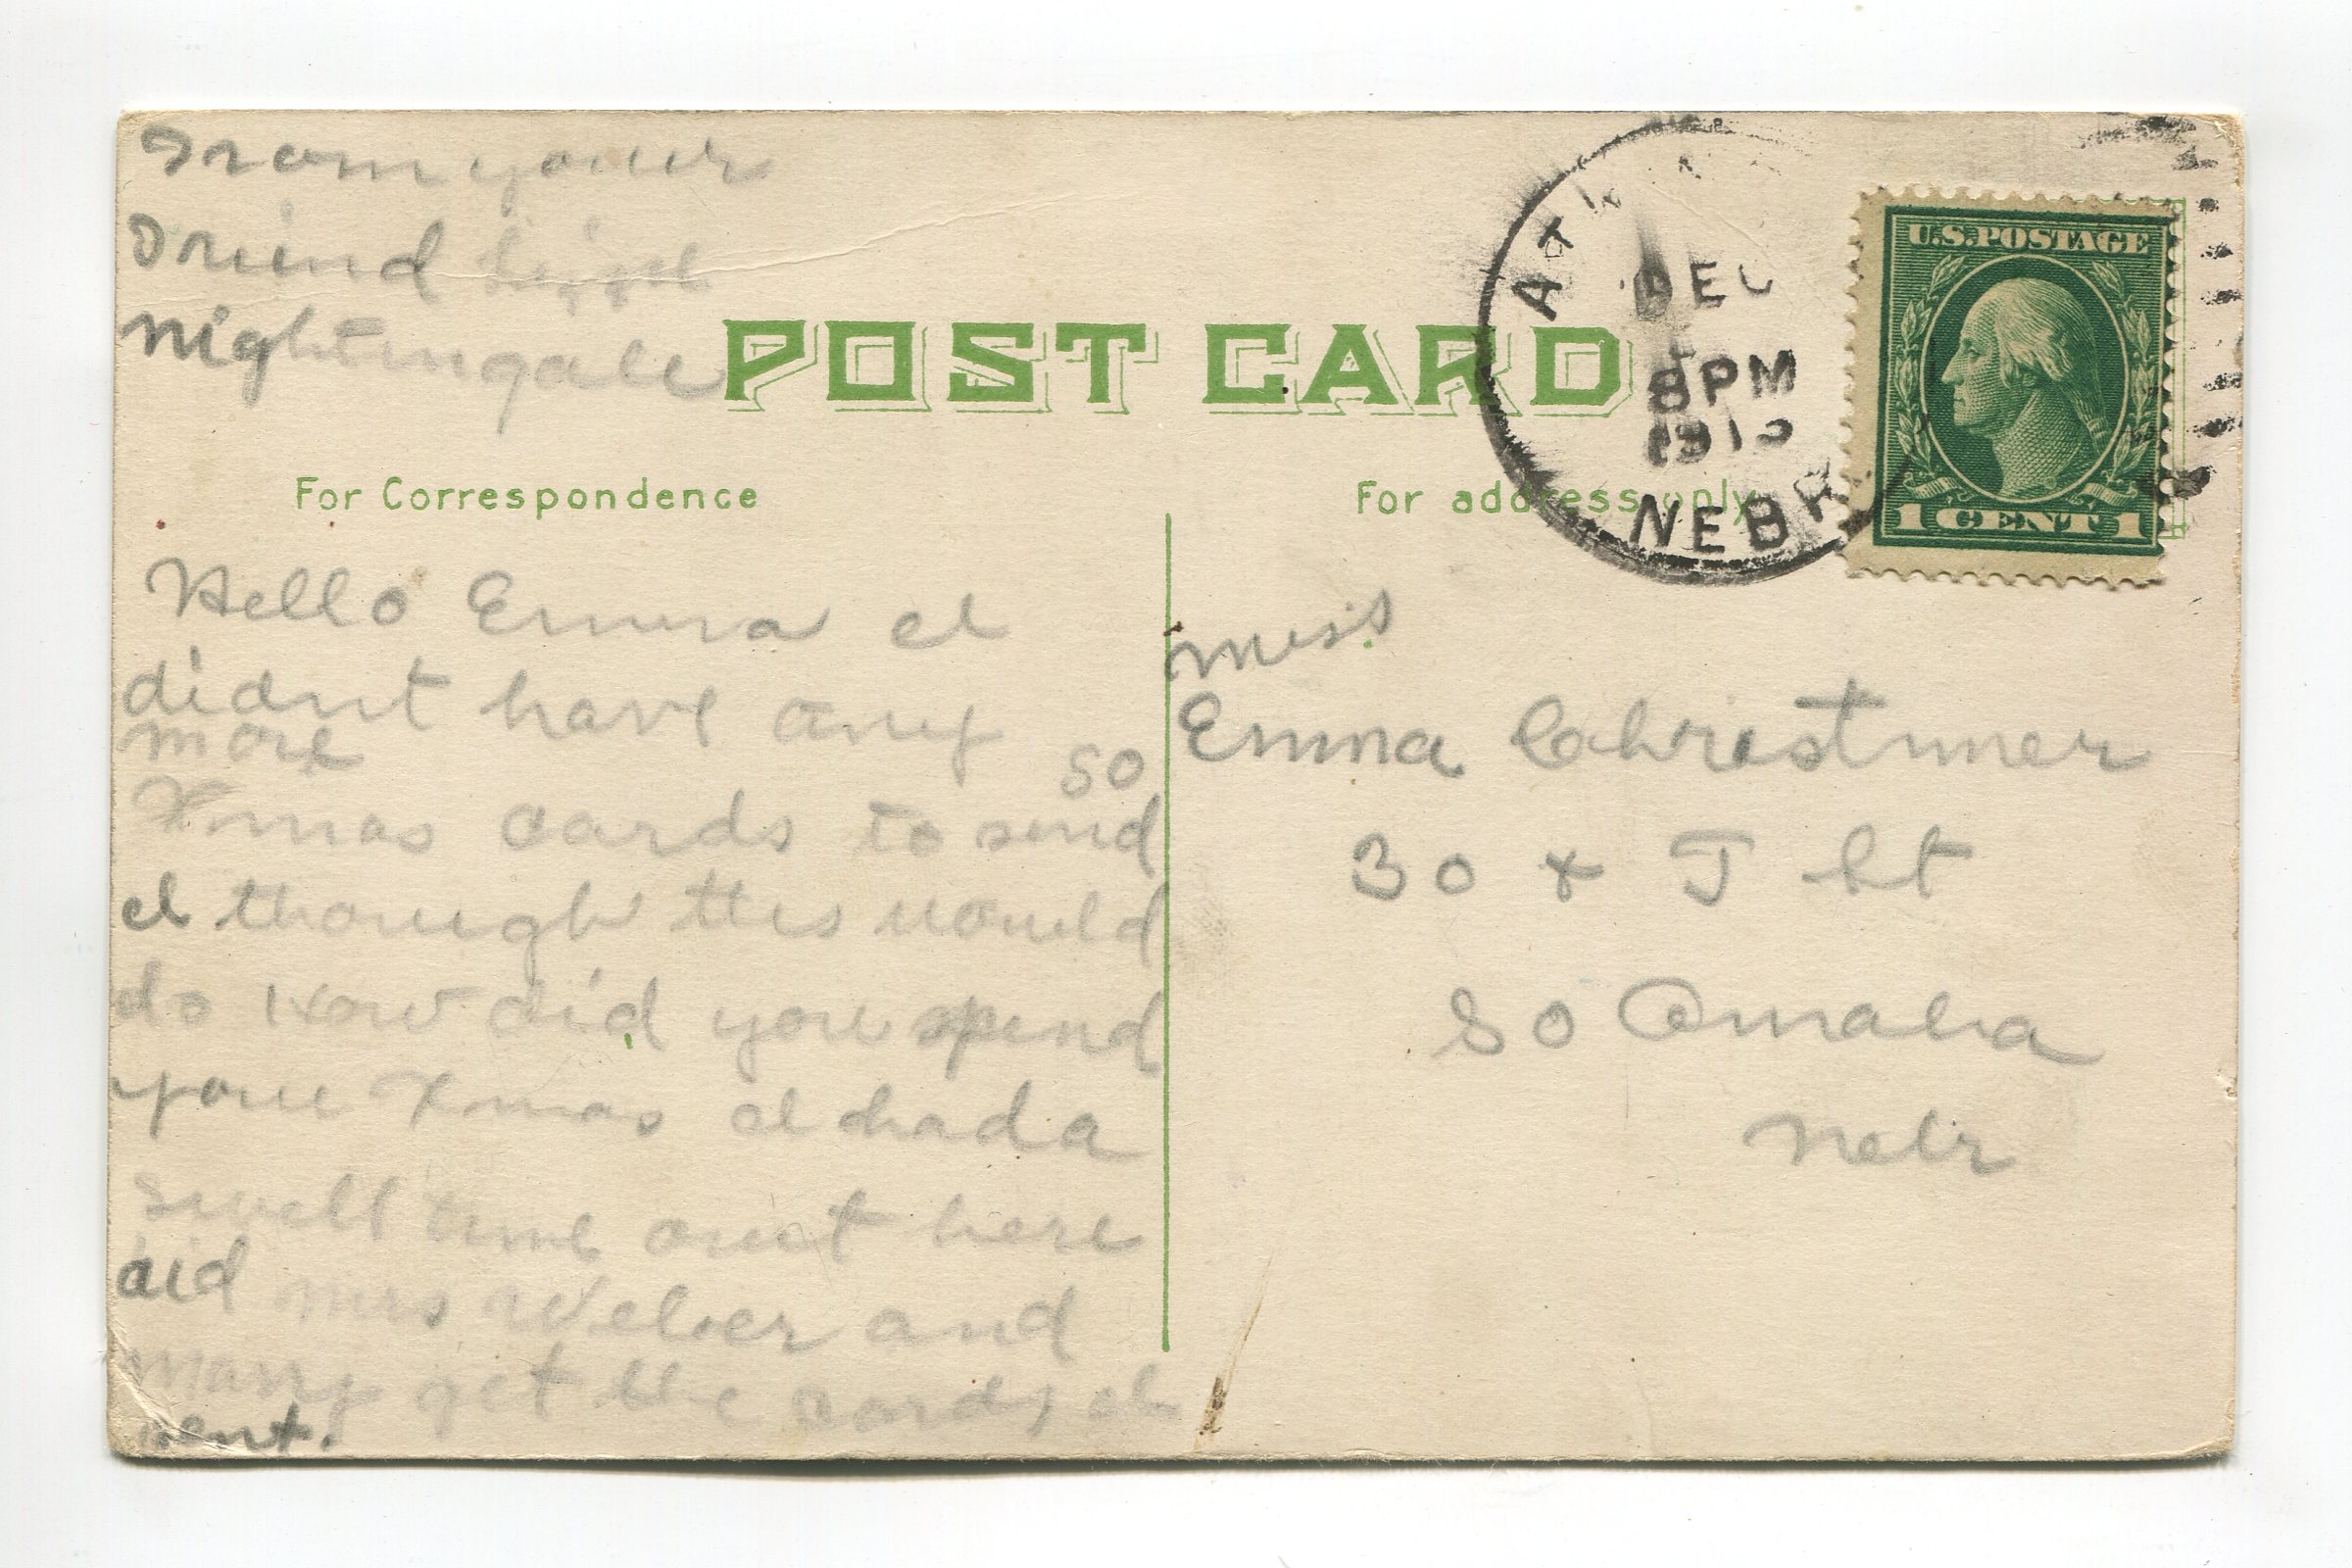 From your
Friend Lizzie
Nightingale
POST CARD
DEC
8PM
NEBR
U.S.POSTAGE
1 CENT 1
For Correspondence
For address only
Hello Emma I
didnt have any
more so
Xmas cards to send
I though this would
do How did you spend
your Xmas I had a
swell time out here
did Mrs Weber and
Marry get the cards I
sent.
Miss
Emma Christmer
30 + J St
So Omaha
Nebr